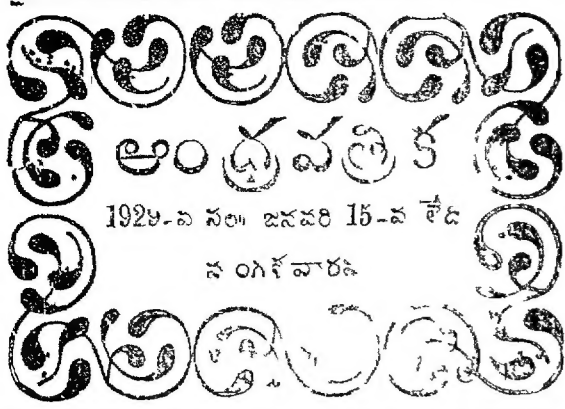 ఆంధ్రపత్రిక
1929-వ సం॥ జనవరి 15-వ తేది
మంగళవారము